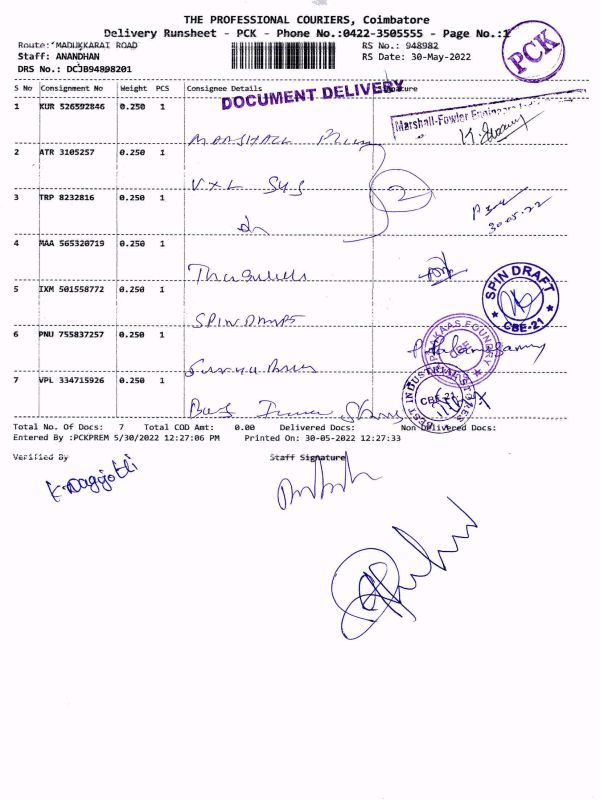 THE PROFESSIONAL COURIERS, Coimbatore
Delivery Runsheet - PCK - Phone No.:0422-3505555 - Page No.:1
Route: MADUKKARAI ROAD
RS No.: 948982
Staff: ANANDHAN
RS Date: 30-May-2022
DRS No.: DCJB94898201
PCK
S No Consignment No Weight PCS Consignee Details Signature
DOCUMENT DELIVERY
1 KUR 526592846 0.250 1
Marshall-Fowler Engineers
MARSHALL
2 ATR 3105257 0.250 1
VXL SYS
2
3 TRP 8232816 0.250 1
30.05.22
do
4 MAA 565320719 0.250 1
5 IXM 501558772 0.250 1
SPIN DRAFT
CBE-21
SPIN DRAFTS
6 PNU 755837257 0.250 1
FOUNDRY
CBE
7 VPL 334715926 0.250 1
BEST INDUSTRIAL STORES
CBE-21
Best
Total No. Of Docs: 7 Total COD Amt: 0.00 Delivered Docs: Non Delivered Docs:
Entered By :PCKPREM 5/30/2022 12:27:06 PM Printed On: 30-05-2022 12:27:33
Verified By Staff Signature